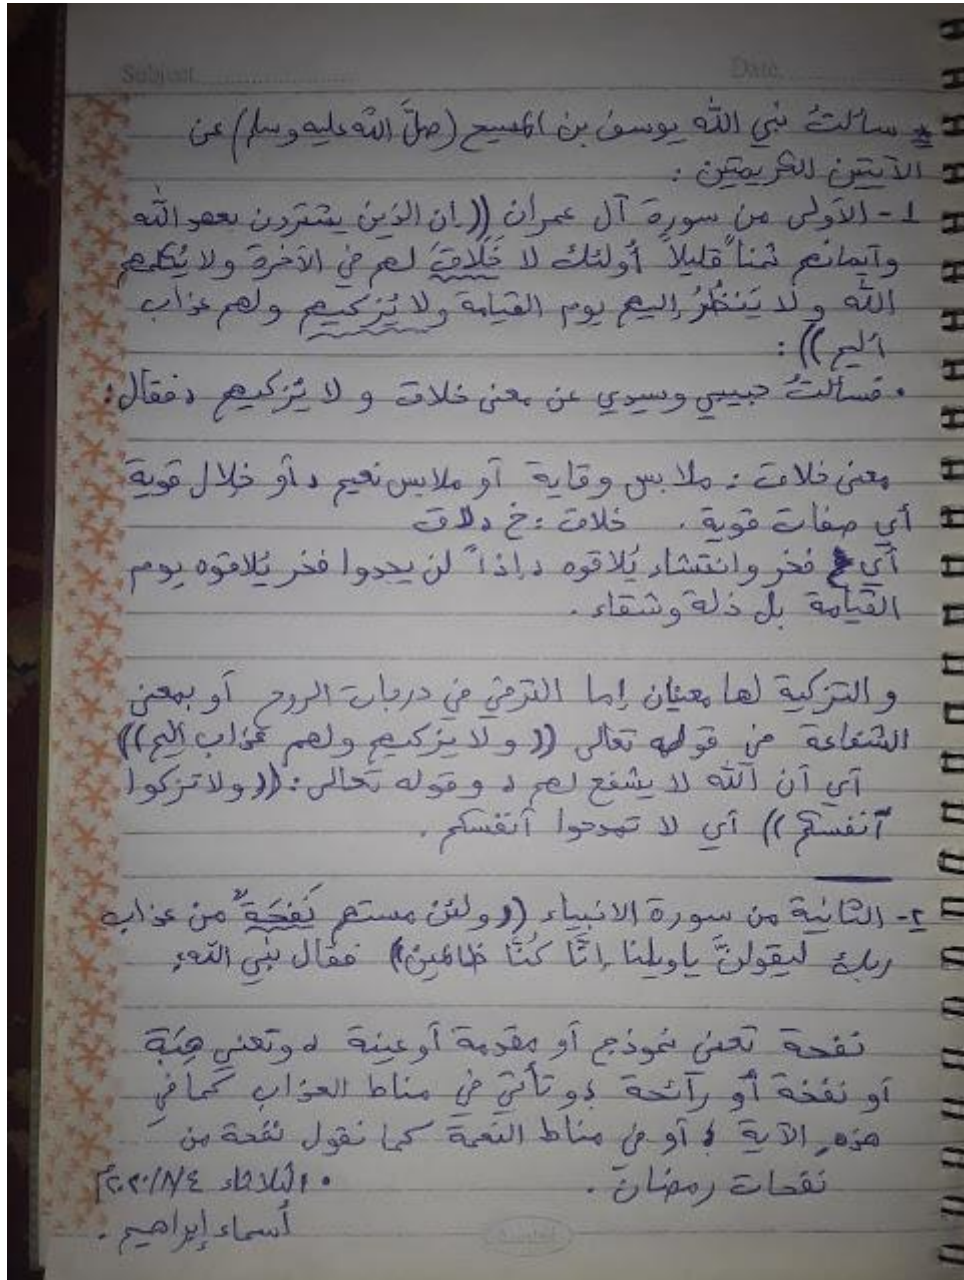 Subject
Date
* سألتُ نبي الله يوسف بن المسيح (صلَّ الله عليه وسلم) عن
الآيتين الكريمتين :
١- الأولى من سورة آل عمران ((إن الذين يشترون بعهد الله
وأيمانهم ثمناً قليلاً أولئك لا خَلَاقَ لهم في الآخرة ولا يُكلمهم
الله ولا يَنظُرُ إليهم يوم القيامة ولا يُزكيهم ولهم عذاب
أليم)) :
• فسألتُ حبيبي وسيدي عن معنى خلاق و لا يُزكيهم ، فقال :
معنى خلاق : ملابس وقاية أو ملابس نعيم ، أو خِلال قوية
أي صفات قوية . خلاق : خ ، لاق
أي فخر وانتشاء يُلاقوه ، إذاً لن يجدوا فخر يُلاقوه يوم
القيامة بل ذلة وشقاء .
و التزكية لها معنيان إما الترقي في درجات الروح أو بمعنى
الشفاعة من قوله تعالى ((ولا يزكيهم ولهم عذاب اليم))
أي أن الله لا يشفع لهم ، و قوله تعالى : ((ولا تزكوا
أنفسكم)) أي لا تمدحوا أنفسكم .
٢- الثانية من سورة الانبياء ((ولئن مستهم نَفحَةٌ من عذاب
ربك ليقولنَّ ياويلنا إنَّا كُنَّا ظالمين)) فقال نبي الله :
نفحة تعني نموذج أو مقدمة أو عينة ، وتعني هِبَة
أو نفخة أو رآئحة ، و تأتي في مناط العذاب كما في
هذه الآية ، أو في مناط النعمة كما نقول نفحة من
نفحات رمضان .
• الثلاثاء ٢٠٢٠/٨/٤م
أسماء إبراهيم .